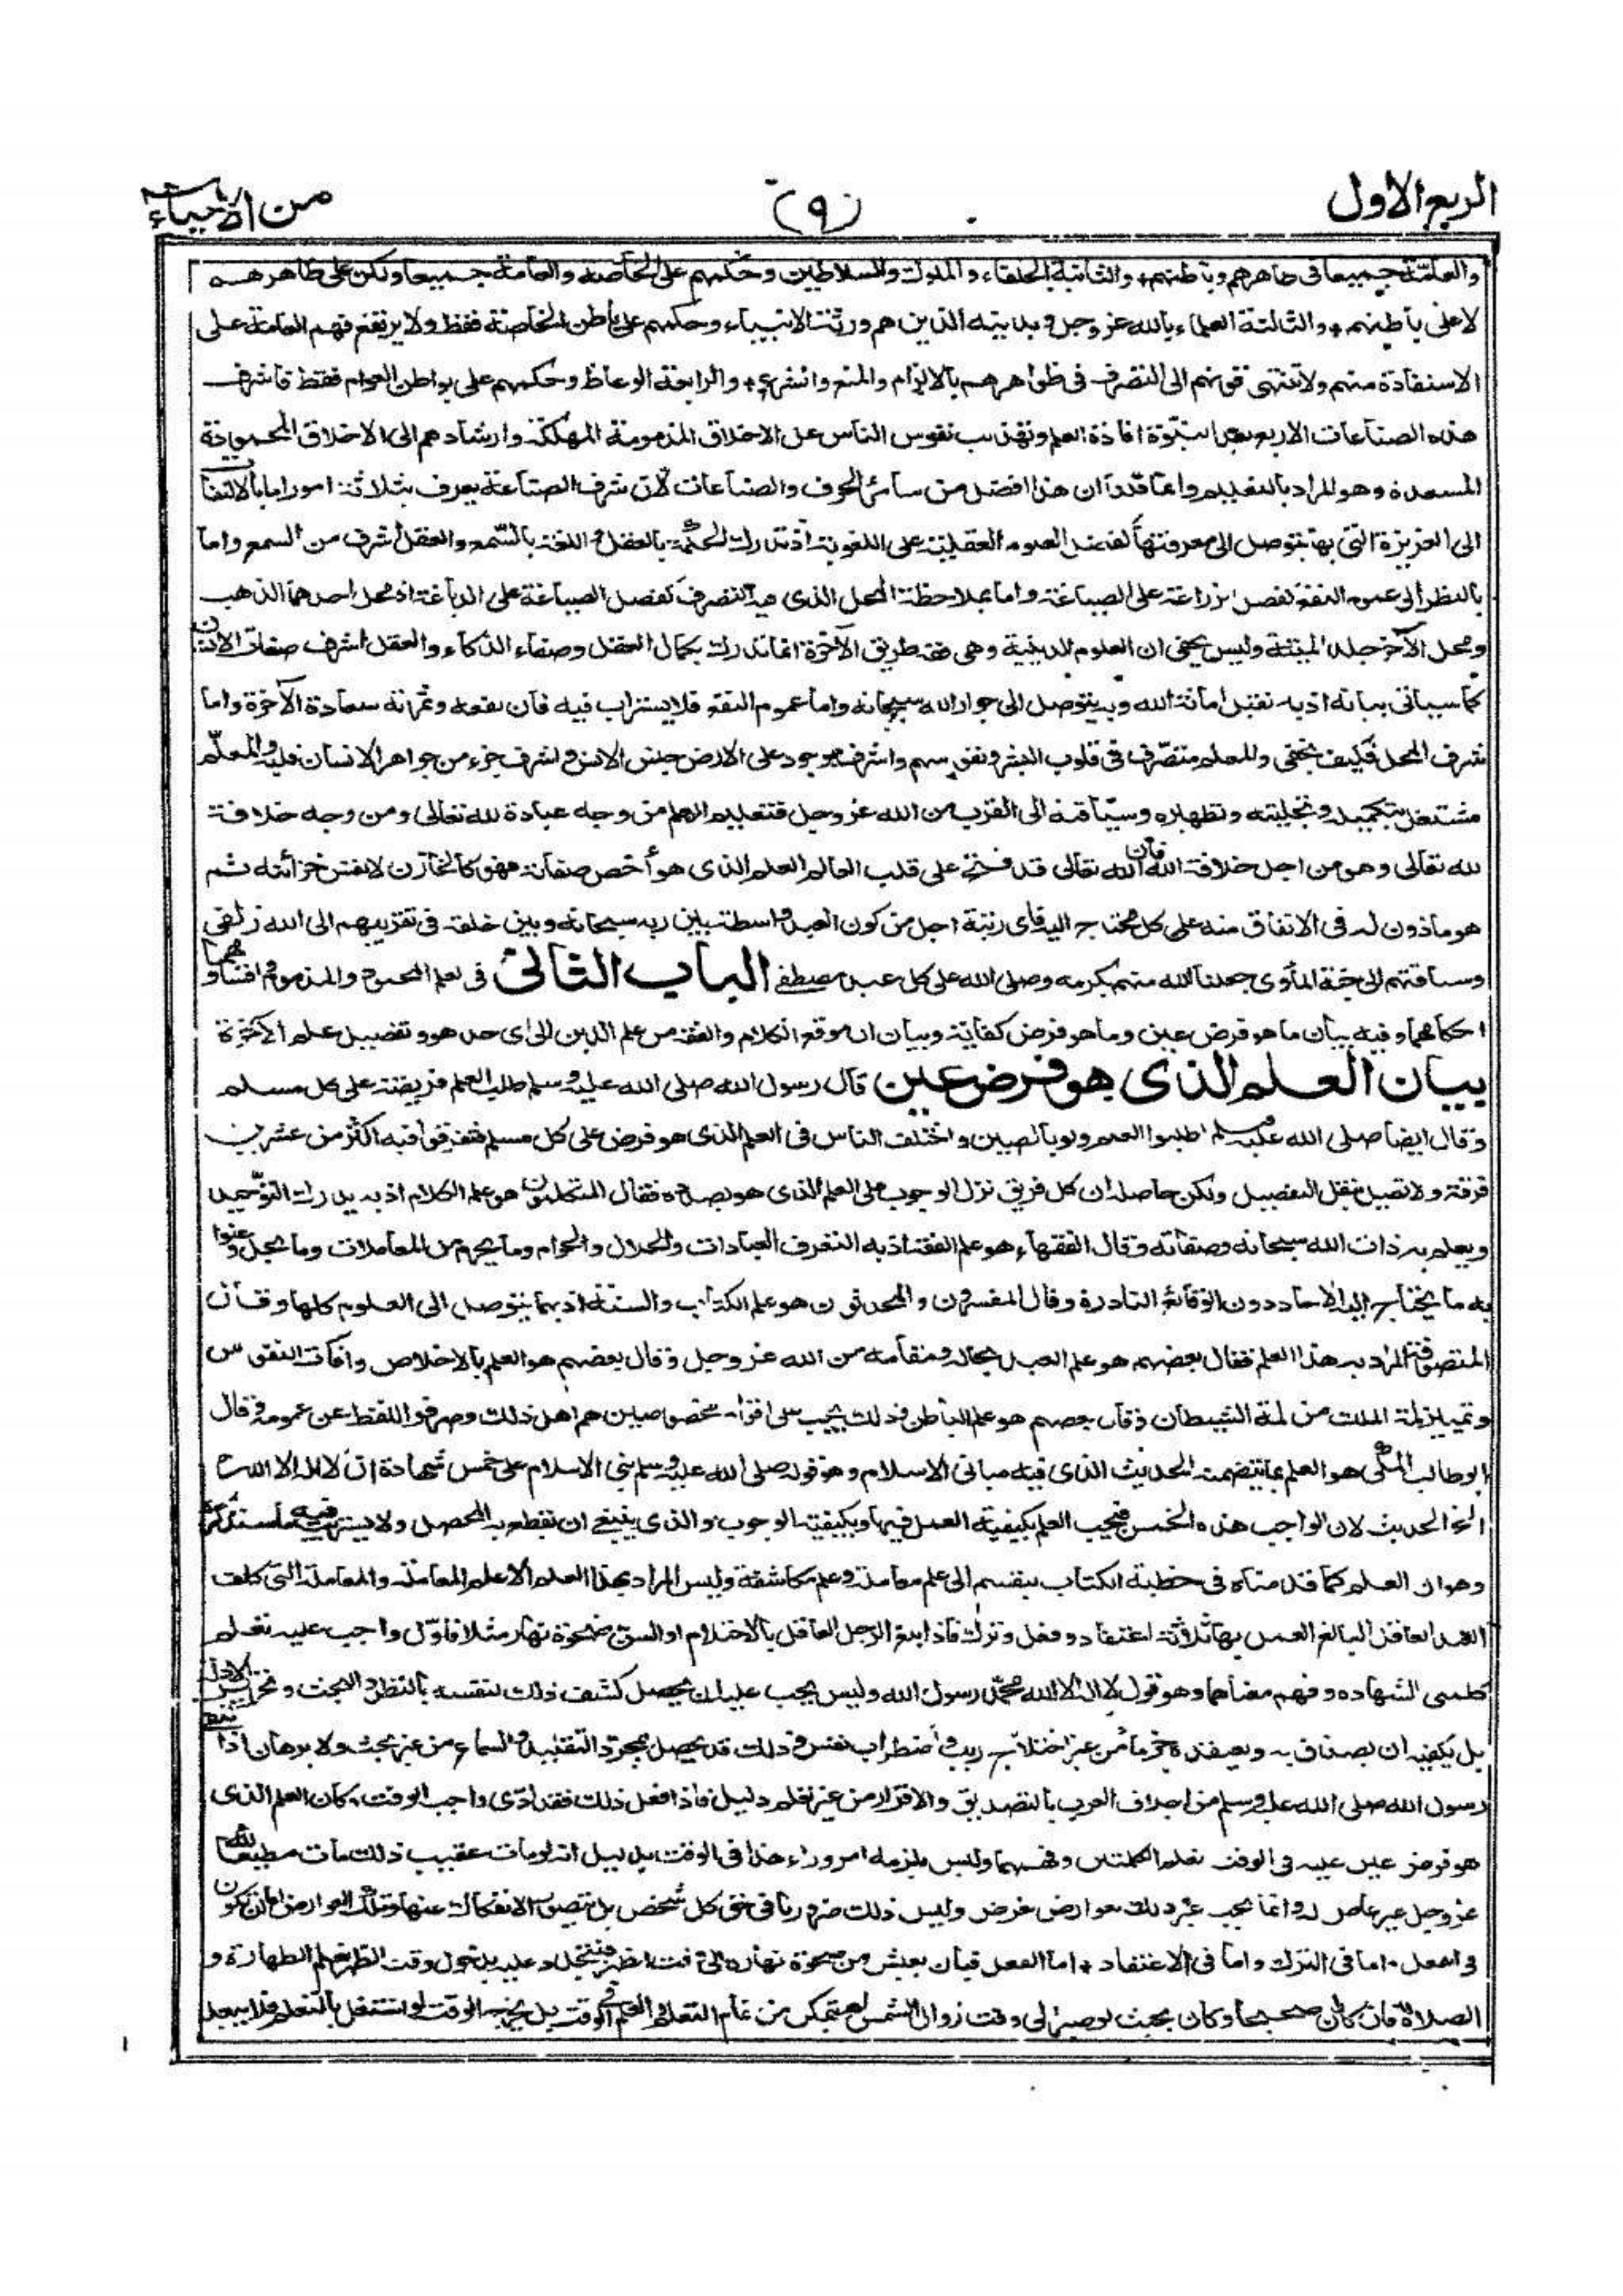 الربع الاول
(٩)
من الاحياء
والعامّة جميعا فى ظاهرهم وباطنهم+ والثانية الخلفاء والملوك والسلاطين وحكمهم على الخاصة والعامة جميعا ولكن على ظاهرهم
لا على باطنهم+ والثالثة العلماء بالله عز وجل وبدينه الذين هم ورثة الانبياء وحكمهم على باطن الخاصة فقط ولا يرتفع فهم العامة على
الاستفادة منهم ولا تنتهى قوتهم الى التصرف فى ظواهرهم بالالزام والمنع والشرع+ والرابعة الوعاظ وحكمهم على بواطن العوام فقط فاشرف
هذه الصناعات الاربع بعد النبوّة افادة العلم وتهذيب نفوس الناس عن الاخلاق المذمومة المهلكة وارشادهم الى الاخلاق المحمودة
المسعدة وهو المراد بالتعليم وانما قلنا ان هذا افضل من سائر الحرف والصناعات لان شرف الصناعة يعرف بثلاثة امور اما بالالتفات
الى الغريزة التى بها يتوصل الى معرفتها كفضل العلوم العقلية على اللغوية اذ تدرك الحكمة بالعقل و اللغة بالسّمع والعقل اشرف من السمع واما
بالنظر الى عموم النفع كفضل الزراعة على الصياغة واما بملاحظة المحل الذى فيه التصرف كفضل الصياغة على الدباغة اذ محل احدهما الذهب
ومحل الآخر جلد الميتة وليس يخفى ان العلوم الدينية وهى فقه طريق الآخرة انما تدرك بكمال العقل وصفاء الذكاء والعقل اشرف صفات الانسان
كما سياتى بيانه اذ به تقبل امانة الله وبه يتوصل الى جوار الله سبحانه واما عموم النفع فلا يستراب فيه فان نفعه وثمرته سعادة الآخرة واما
شرف المحل فكيف يخفى والمعلم متصّرف فى قلوب البشر ونفوسهم واشرف موجود على الارض جنس الانس واشرف جزء من جواهر الانسان قلبه والمعلّم
مشتغل بتكميله وتجليته وتطهيره وسياقته الى القرب من الله عز وجل فتعليم العلم من وجه عبادة لله تعالى ومن وجه خلافة
لله تعالى وهو من اجل خلافة الله فان الله تعالى قد فتح على قلب العالم العلم الذى هو أخص صفاته فهو كالخازن لانفس خزائنه ثم
هو ماذون له فى الانفاق منه على كل محتاج اليه فاى رتبة اجل من كون العبد واسطة بين ربه سبحانه وبين خلقه فى تقريبهم الى الله زلفى
وسياقتهم الى جنة المأوى جعلنا الله منهم بكرمه وصلى الله على كل عبد مصطفى الباب الثانى فى العلم المحمود والمذموم واقسامهما و
احكامهما وفيه بيان ما هو فرض عين وما هو فرض كفاية وبيان ان موقع الكلام والفقه من علم الدين الى اى حد هو وتفضيل علم الآخرة
بيان العلم الذى هو فرض عين قال رسول الله صلى الله عليه وسلم طلب العلم فريضة على كل مسلم
وقال ايضا صلى الله عليه وسلم اطلبوا العلم ولو بالصين واختلف الناس فى العلم الذى هو فرض على كل مسلم فتفرقوا فيه اكثر من عشرين
فرقة ولا نطيل بنقل التفصيل ولكن حاصله ان كل فريق نزل الوجوب على العلم الذى هو بصدده فقال المتكلمون هو علم الكلام اذ به يدرك التوّحيد
ويعلم به ذات الله سبحانه وصفاته وقال الفقهاء هو علم الفقه اذ به التعرف العبادات والحلال والحرام وما يحرم من المعاملات وما يحل وعنوا
به ما يحتاج اليه الآحاد دون الوقائع النادرة وقال المفسرون والمحدثون هو علم الكتاب والسنة اذ بهما يتوصل الى العلوم كلها وقال
المتصوفة المراد به هذا العلم فقال بعضهم هو علم العبد بحاله ومقامه من الله عز وجل وقال بعضهم هو العلم بالاخلاص وآفات النفوس
وتمييز لمة الملك من لمة الشيطان وقال بعضهم هو علم الباطن وذلك يجب على اقوام مخصوصين هم اهل ذلك وصرفوا اللفظ عن عمومه وقال
ابو طالب المكّى هو العلم بما يتضمنه الحديث الذى فيه مبانى الاسلام وهو قوله صلى الله عليه وسلم بنى الاسلام على خمس شهادة ان لا اله الا الله
الخ الحديث لان الواجب هذه الخمس فيجب العلم بكيفية العمل فيها وبكيفية الوجوب والذى ينبغى ان يقطع به المحصل ولا يستريب فيه ما سنذكره
وهو ان العلم كما قدمناه فى خطبة الكتاب ينقسم الى علم معاملة وعلم مكاشفة وليس المراد بهذا العلم الا علم المعاملة والمعاملة التى كلف
العبد العاقل البالغ العمل بها ثلاثة اعتقاد وفعل وترك فاذا بلغ الرجل العاقل بالاحتلام او السن ضحوة نهار مثلا فاوّل واجب عليه تعلم
كلمتى الشهاده وفهم معناهما وهو قول لا اله الا الله محمّد رسول الله وليس يجب عليه ان يحصل كشف ذلك لنفسه بالنظر والبحث وتحرير الادلة
بل يكفيه ان يصدق به ويعتقده جزما من غير اختلاج ريب واضطراب نفس وذلك قد يحصل بمجرد التقليد والسماع من غير بحث ولا برهان اذ اكتفى
رسول الله صلى الله عليه وسلم من اجلاف العرب بالتصديق والاقرار من غير تعلم دليل فاذا فعل ذلك فقد ادّى واجب الوقت وكان العلم الذى
هو فرض عين عليه فى الوقت تعلم الكلمتين وفهمهما وليس يلزمه امر وراء هذا فى الوقت بدليل انه لو مات عقيب ذلك مات مطيعا لله
عز وجل غير عاص له وانما يجب غير ذلك بعوارض تعرض وليس ذلك ضروريا فى حق كل شخص بل يتصور الانفكاك عنها وتلك العوارض اما ان تكون
فى الفعل واما فى الترك واما فى الاعتقاد + اما الفعل فبان يعيش من ضحوة نهاره الى وقت الظهر فيتجدد عليه بدخول وقت الظهر تعلم الطهارة و
الصلاة فان كان صحيحا وكان بحيث لو صبر الى وقت زوال الشمس لم يتمكن من تمام التعلم والعمل فى الوقت بل يخرج الوقت لو اشتغل بالتعلم فلا يبعد